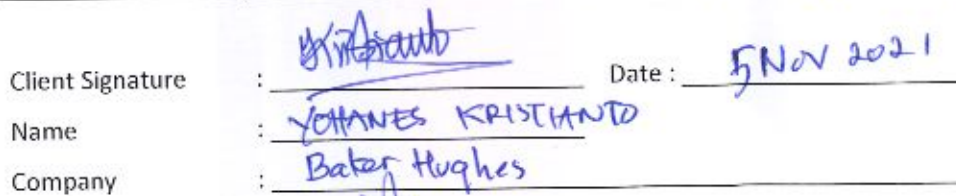 Client Signature : Date : 5 NOV 2021
Name : YOHANES KRISTIANTO
Company : Baker Hughes